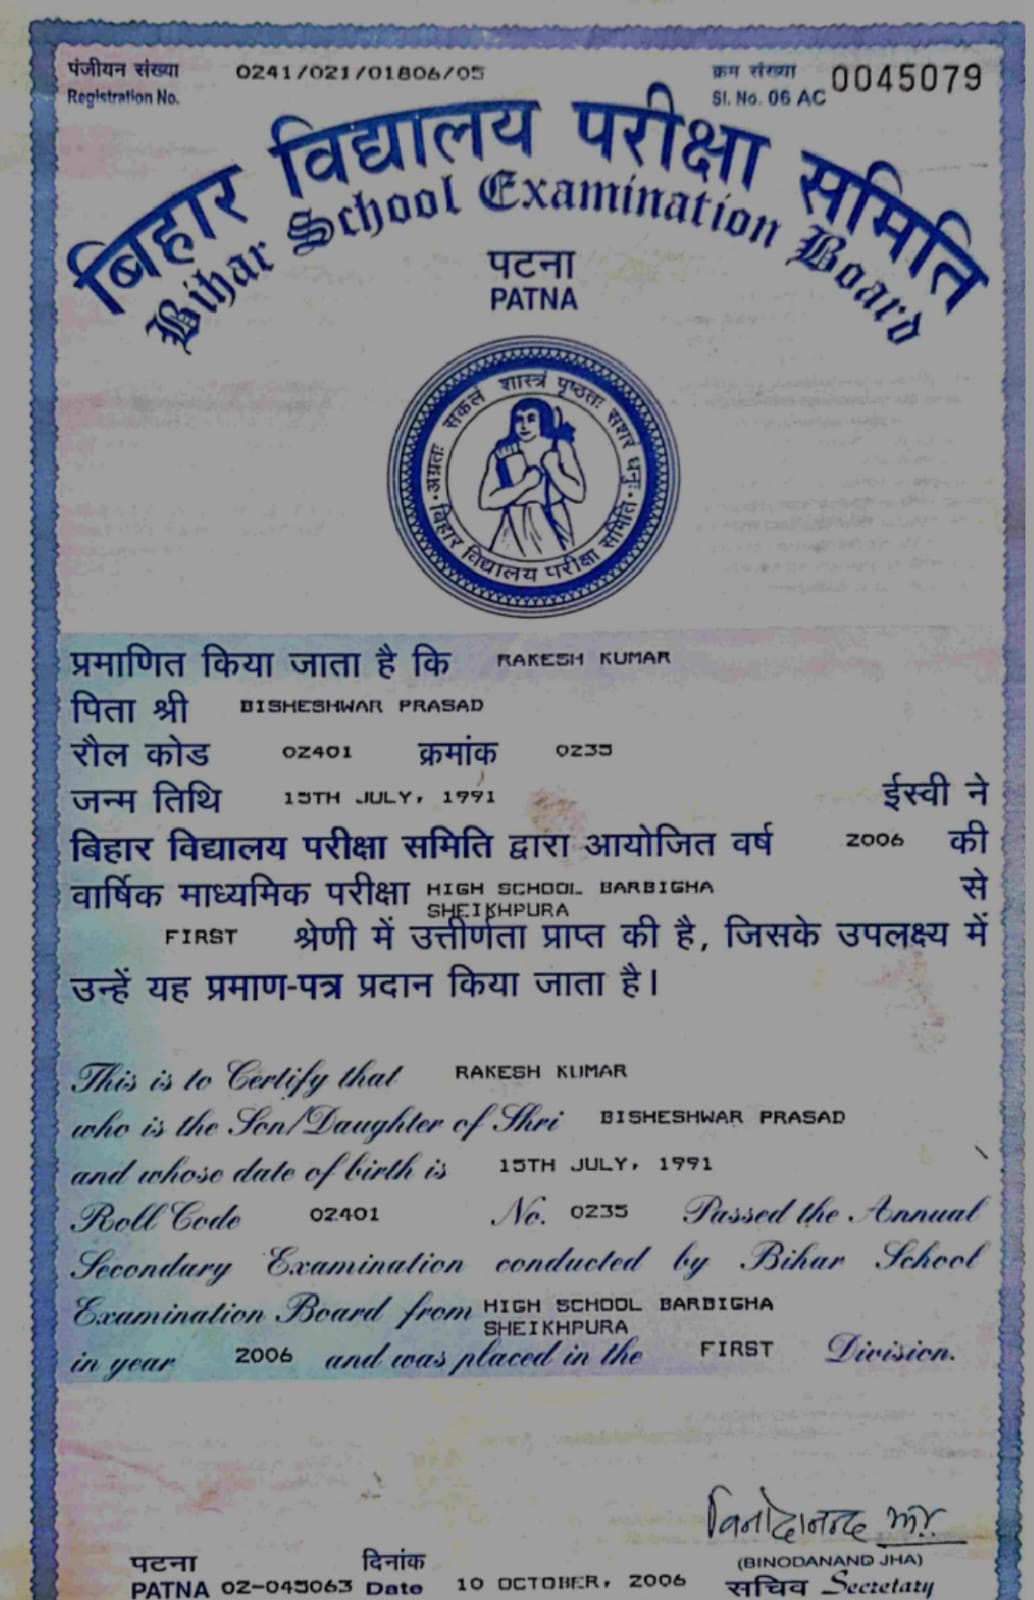 पंजीयन संख्या 0241/021/01806/05 क्रम संख्या 0045079
Registration No. Sl. No. 06 AC
बिहार विद्यालय परीक्षा समिति
Bihar School Examination Board
पटना
PATNA
अग्रतः सकलं शास्त्रं पृष्ठतः सशरं धनुः
बिहार विद्यालय परीक्षा समिति
प्रमाणित किया जाता है कि RAKESH KUMAR
पिता श्री BISHESHWAR PRASAD
रौल कोड 02401 क्रमांक 0235
जन्म तिथि 15TH JULY, 1991 ईस्वी ने
बिहार विद्यालय परीक्षा समिति द्वारा आयोजित वर्ष 2006 की
वार्षिक माध्यमिक परीक्षा HIGH SCHOOL BARBIGHA से
SHEIKHPURA
FIRST श्रेणी में उत्तीर्णता प्राप्त की है, जिसके उपलक्ष्य में
उन्हें यह प्रमाण-पत्र प्रदान किया जाता है।
This is to Certify that RAKESH KUMAR
who is the Son/Daughter of Shri BISHESHWAR PRASAD
and whose date of birth is 15TH JULY, 1991
Roll Code 02401 No. 0235 Passed the Annual
Secondary Examination conducted by Bihar School
Examination Board from HIGH SCHOOL BARBIGHA
SHEIKHPURA
in year 2006 and was placed in the FIRST Division.
विनोदानन्द झा
पटना दिनांक (BINODANAND JHA)
PATNA 02-045063 Date 10 OCTOBER, 2006 सचिव Secretary